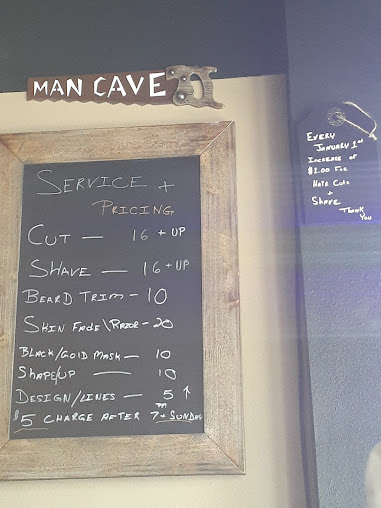 MAN CAVE
SERVICE +
PRICING
CUT — 16 + UP
SHAVE — 16 + UP
BEARD TRIM - 10
SKIN FADE\RAZOR - 20
BLACK/GOLD MASK — 10
SHAPE/UP — 10
DESIGN/LINES — 5 ↑
$5 CHARGE AFTER 7PM + SUNDAY
EVERY
JANUARY 1st
INCREASE OF
$1.00 FOR
HAIR CUTS
+
SHAVE
THANK
YOU